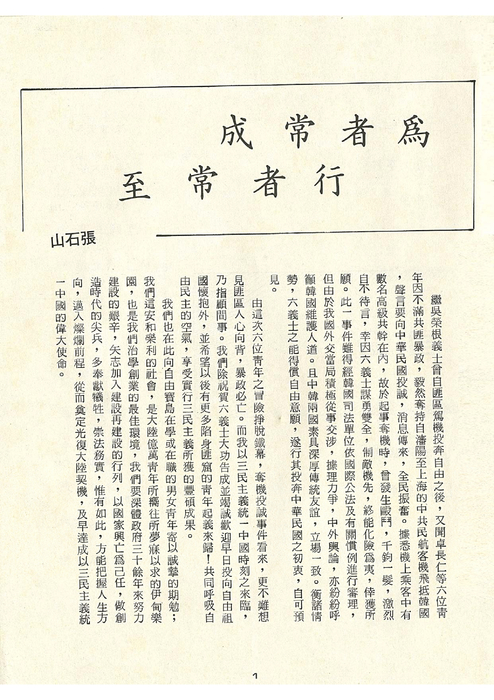 為者常成
行者常至
張石山
繼吳榮根義士曾自匪區駕機投奔自由之後，又聞卓長仁等六位青
年因不滿共匪暴政，毅然奪持自瀋陽至上海的中共民航客機飛抵韓國
，聲言要向中華民國投誠，消息傳來，全民振奮。據悉機上乘客中有
數名高級共幹在內，故於起事奪機時，曾發生毆鬥，千鈞一髮，激烈
自不待言，幸因六義士謀勇雙全，制敵機先，終能化險為夷，倖獲所
願。此一事件雖得經韓國司法單位依國際公法及有關慣例進行審理，
但由於我國外交當局積極從事交涉，據理力爭，中外輿論，亦紛紛呼
籲韓國維護人道。且中韓兩國素具深厚傳統友誼，立場一致。衡諸情
勢，六義士之能得償自由意願，遂行其投奔中華民國之初衷，自可預
見。
由這次六位青年之冒險掙脫鐵幕，奪機投誠事件看來，更不難想
見匪區人心向背，暴政必亡。而我以三民主義統一中國時刻之來臨，
乃指顧間事。我們除祝賀六義士大功告成並竭誠歡迎早日投向自由祖
國懷抱外，並希望以後有更多陷身匪窟的青年起義來歸！共同呼吸自
由民主的空氣，享受實行三民主義所獲的豐碩成果。
我們也在此向自由寶島在學或在職的男女青年寄以誠摯的期勉；
我們這安和樂利的社會，是大陸億萬青年所嚮往所夢寐以求的伊甸樂
園，也是我們治學創業的最佳環境，我們要深體政府三十餘年來努力
建設的艱辛，矢志加入建設再建設的行列，以國家興亡為己任，做創
造時代的尖兵，多奉獻犧牲，崇法務實，惟有如此，方能把握人生方
向，邁入燦爛前程，從而奠定光復大陸契機，及早達成以三民主義統
一中國的偉大使命。